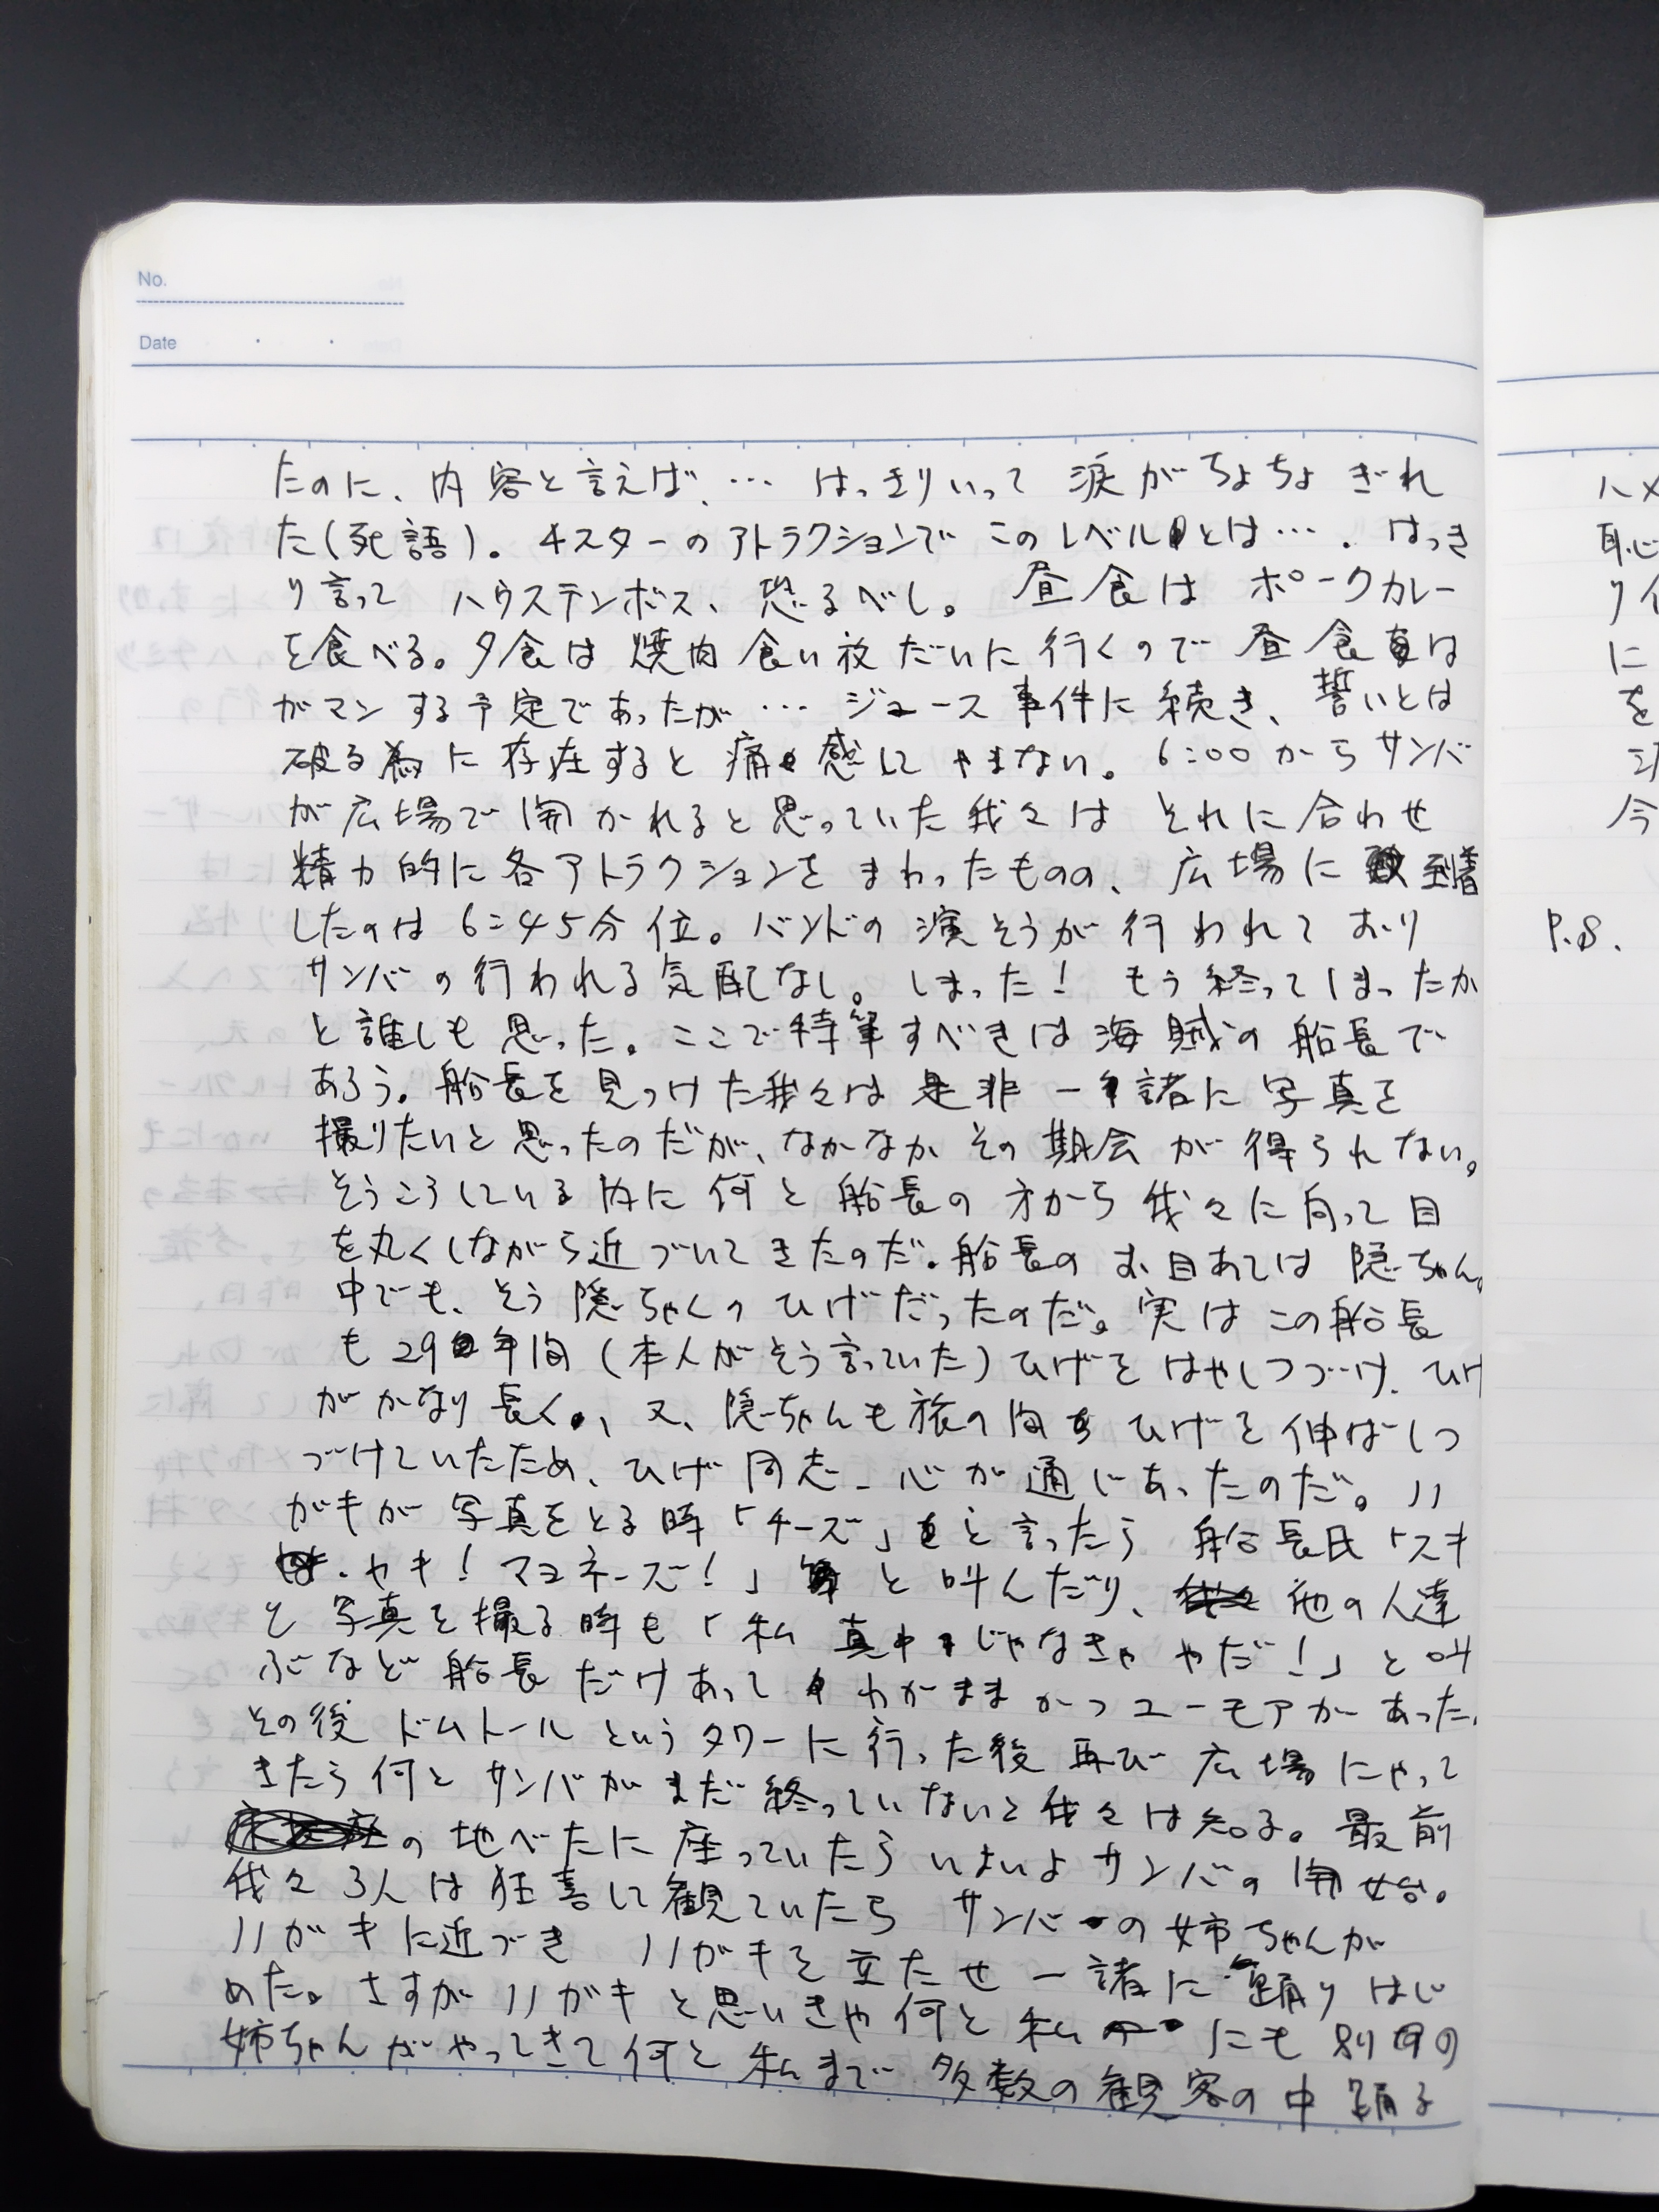 No.
Date
たのに、内容と言えば、… はっきりいって 涙がちょちょぎれ
た(死語)。4スターのアトラクションでこのレベルとは…. はっき
り言って ハウステンボス、恐るべし。昼食はポークカレー
を食べる。夕食は焼肉食い放だいに行くので昼食は
ガマンする予定であったが… ジュース事件に続き、誓いとは
破る為に存在すると痛感してやまない。6:00からサンバ
が広場で開かれると思っていた我々はそれに合わせ
精力的に各アトラクションをまわったものの、広場に到着
したのは6:45分位。バンドの演そうが行われており
サンバの行われる気配なし。しまった! もう終ってしまったか
と誰しも思った。ここで特筆すべきは海賊の船長で
あろう。船長を見つけた我々は是非一諸に写真を
撮りたいと思ったのだが、なかなかその期会が得られない。
そうこうしている内に何と船長の方から我々に向って目
を丸くしながら近づいてきたのだ。船長のお目あては隠ちゃん。
中でも、そう隠ちゃんのひげだったのだ。実はこの船長
も29年間(本人がそう言っていた)ひげをはやしつづけ、ひげ
がかなり長く、又、隠ちゃんも旅の間ひげを伸ばしつ
づけていたため、ひげ同志、心が通じあったのだ。ハ
ガキが写真をとる時「チーズ」と言ったら船長氏「スキ
ヤキ!マヨネーズ!」と叫んだり、他の人達
と写真を撮る時も「私真中じゃなきゃやだ!」と叫
ぶなど船長だけあってわがままかつユーモアがあった。
その後ドムトールというタワーに行った後再び広場にやって
きたら何とサンバがまだ終っていないと我々は知る。最前
の地べたに座っていたらいよいよサンバの開始。
我々3人は狂喜して観ていたらサンバの姉ちゃんが
ハガキに近づき ハガキを立たせ一諸に踊りはじ
めた。さすがハガキと思いきや何と私にも別の
姉ちゃんがやってきて何と私まで多数の観客の中踊る
ハメ
恥
りイ
に
を
今
P.S.